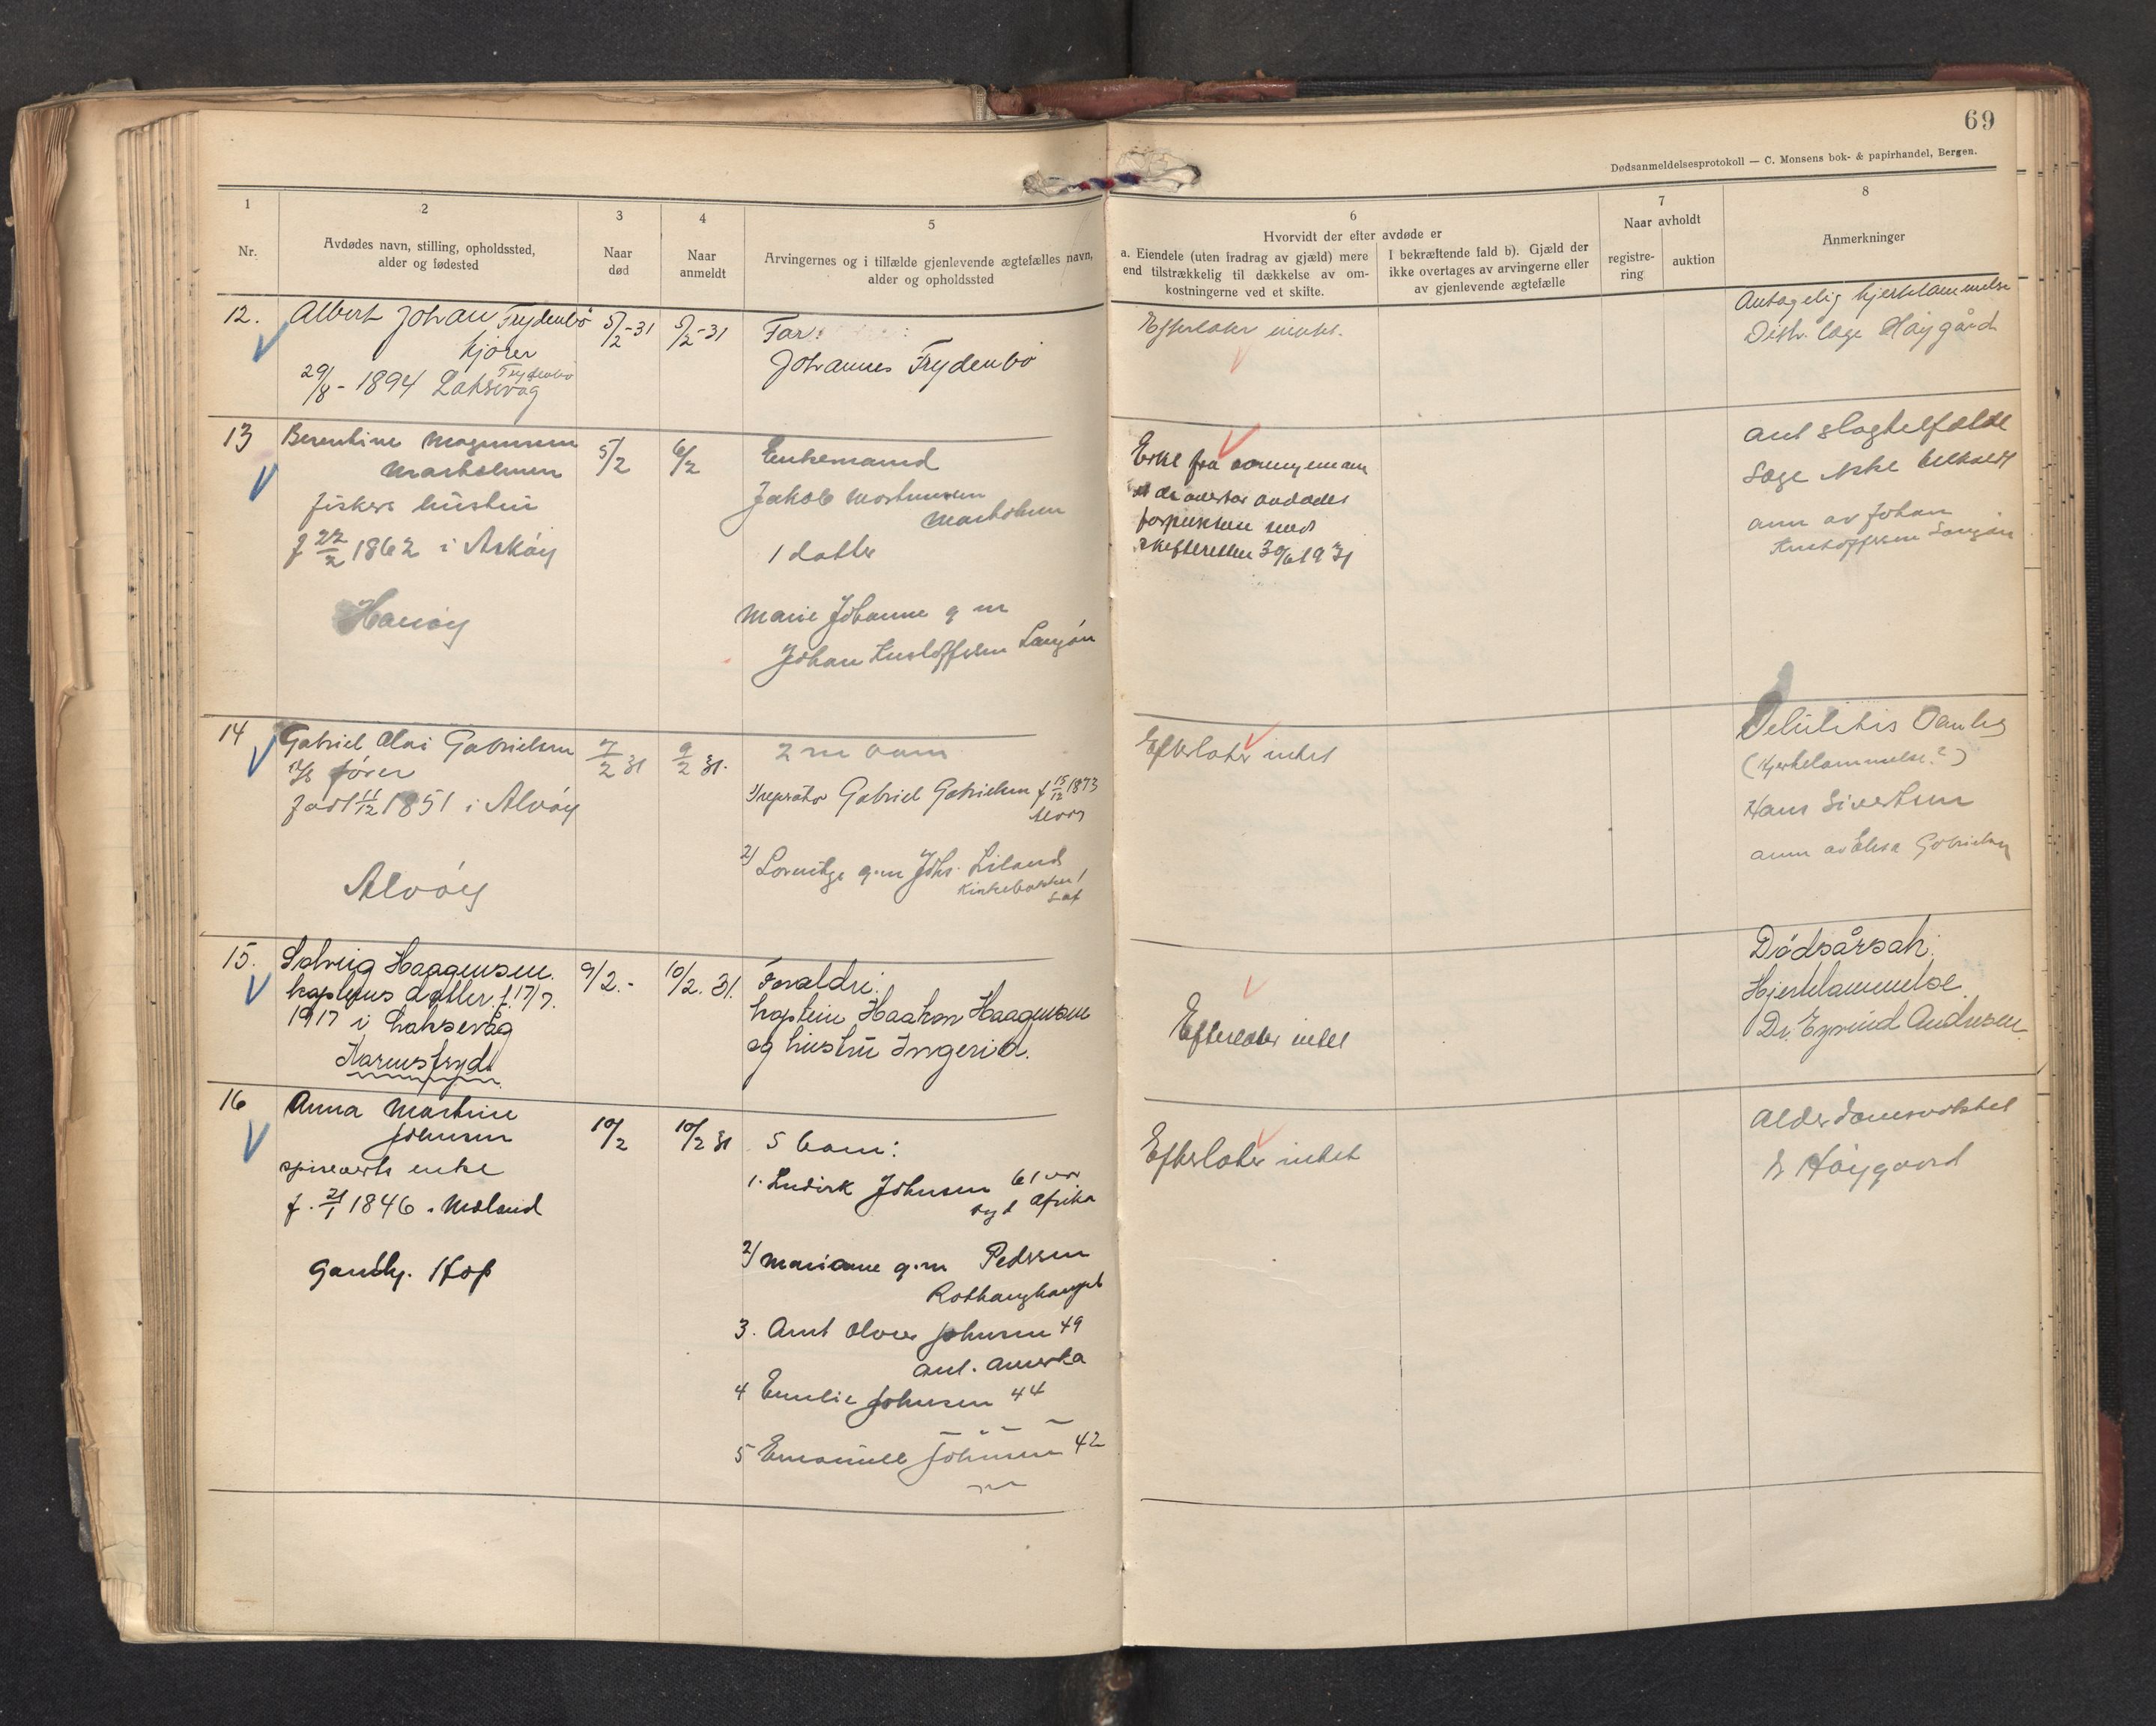 69
Dødsanmeldelsesprotokoll — C. Monsens bok- & papirhandel, Bergen.
1
Nr.
2
Avdødes navn, stilling, opholdssted,
alder og fødested
3
Naar
død
4
Naar
anmeldt
5
Arvingernes og i tilfælde gjenlevende ægtefælles navn,
alder og opholdssted
6
Hvorvidt der efter avdøde er
a. Eiendele (uten fradrag av gjæld) mere
end tilstrækkelig til dækkelse av om-
kostningerne ved et skifte.
I bekræftende fald b). Gjæld der
ikke overtages av arvingerne eller
av gjenlevende ægtefælle
7
Naar avholdt
registre-
ring
auktion
8
Anmerkninger
12.
Albert Johan Frydenbö
kjører
29/8 - 1894 Laksevåg
Frydenbö
5/2-31
5/2-31
Far:
Johannes Frydenbö
Efterlater intet.
Antagelig hjertelammelse
Distr. læge Høygård
13
Berentine Magnussen
Marholmen
fiskers hustru
f 22/2 1862 i Askøy
Hanøy
5/2
6/2
Enkemand
Jakob
Marholmen
1 datter
Marie Johanne g m
Johan Kristoffersen Langøen
fra
avdødes
skifteretten 30/6 1931
ant slagtilfælde
Læge ikke tilkaldt
anm av Johan
Kristoffersen Langøen
14
Gabriel Olai Gabrielsen
fører
født 11/12 1851 i Alvøy
Alvøy
7/2 31
9/2 31.
2 barn
1) reparatør Gabriel Gabrielsen f 15/12 1873
Alvøy
2) Lorentze g.m Johs. Liland
Efterlater intet
(Hjertelammelse?)
Hans Sivertsen
anm av Elisa Gabrielsen
15.
Solveig Haagensen.
kapteins datter. f. 17/7.
1917 i Laksevåg
9/2.-
10/2. 31.
Foraldre:
kaptein Haakon Haagensen
og hustru Ingerid.
Efterlater intet
Dødsårsak:
Hjertelammelse.
Dr. Eyvind Andresen.
16
Anna Martine
Johnsen
enke
f. 21/1 1846. Meland
Gamleh. Hop
10/2
10/2 31
5 barn:
1. Ludvik Johnsen 61 år
Syd Afrika
2) Marianne g.m Pedersen
3. Arnt Olver Johnsen 49
ant. Amerka
4 Emilie Johnsen 44
5 Emanuel Johnsen 42
Efterlater intet
Alderdomssvakhet
Dr Høygaard